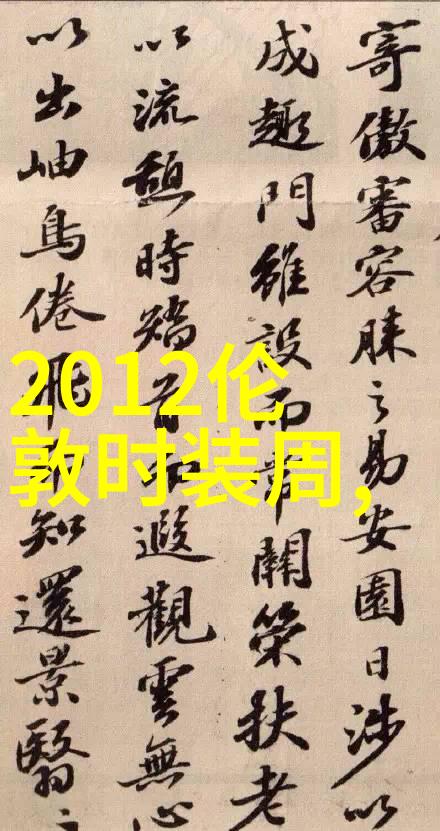 寄傲審容膝之易安園日涉以
成趣門雖設而常關策扶老
以流憩時矯首而遐觀雲無心
以出岫鳥倦飛而知還景翳
2012伦
敦时装周,